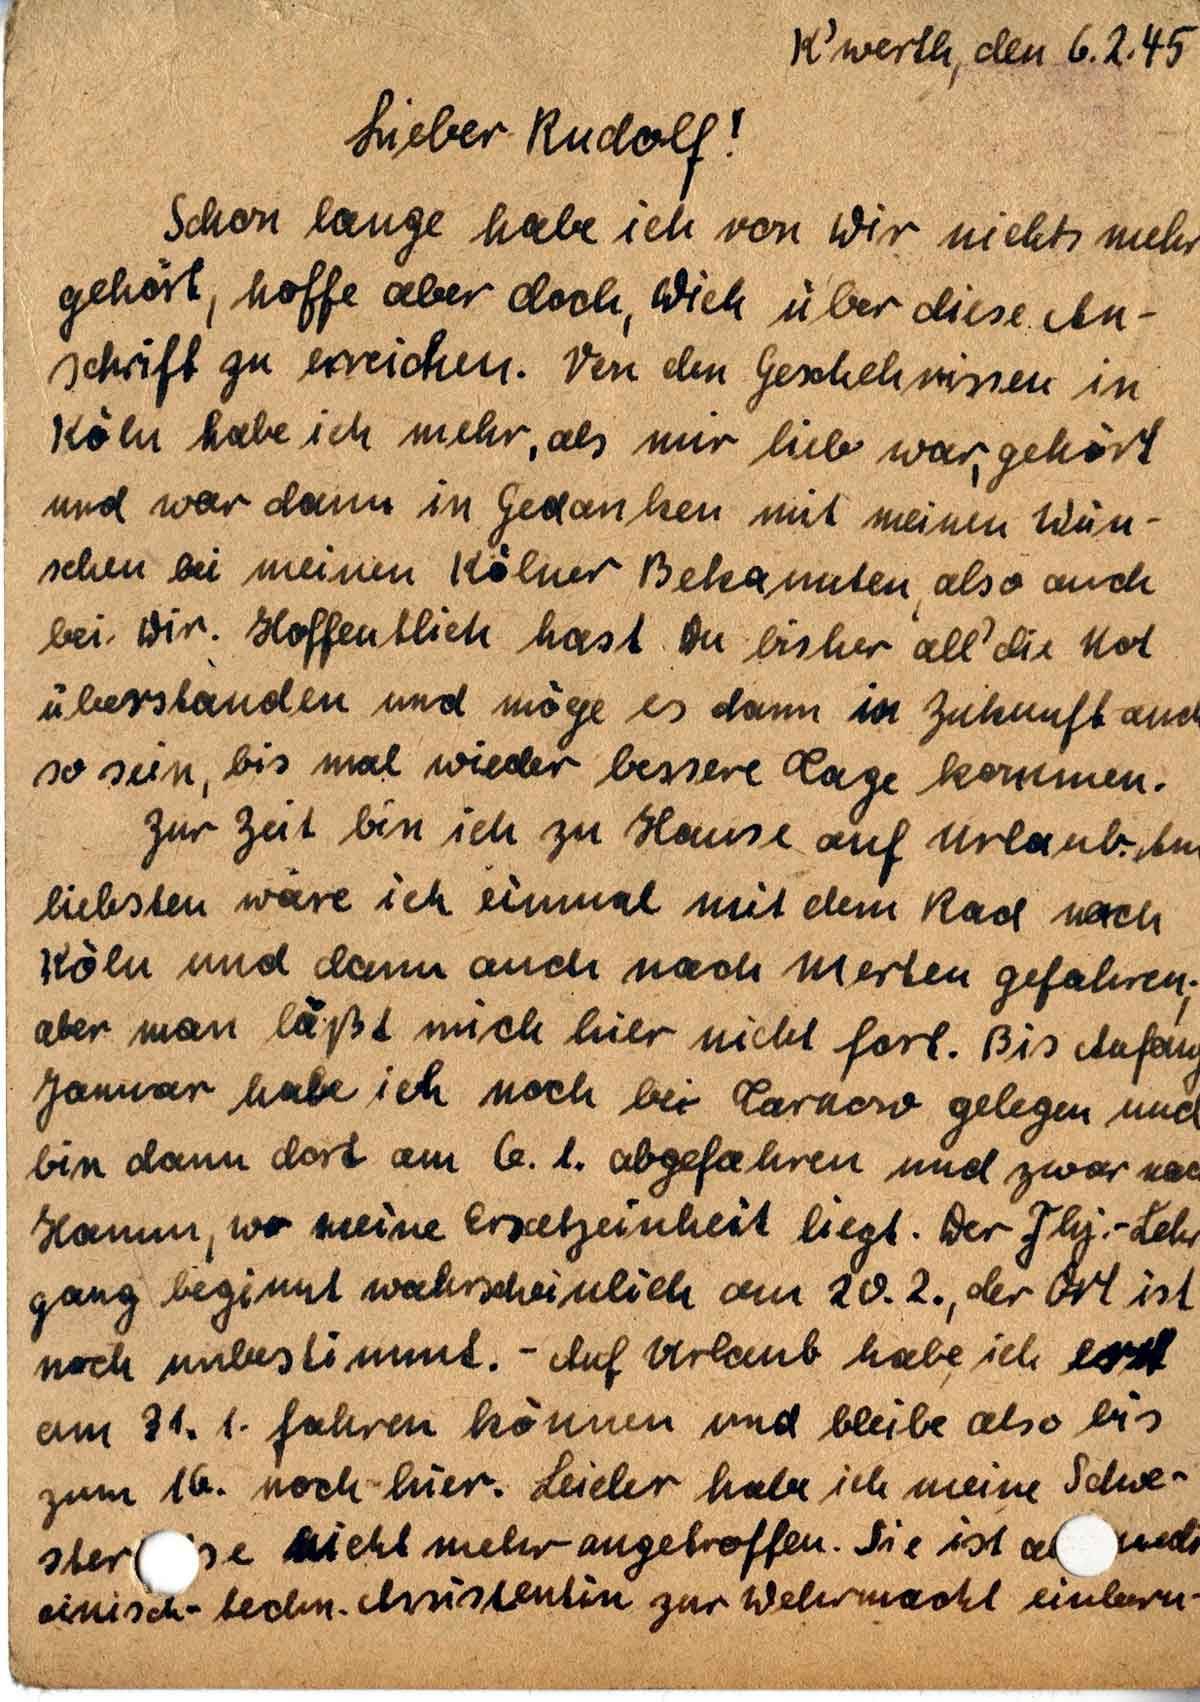 K'werth, den 6.2.45
Lieber Rudolf!
Schon lange habe ich von Dir nichts mehr
gehört, hoffe aber doch, Dich über diese An-
schrift zu erreichen. Von den Geschehnissen in
Köln habe ich mehr, als mir lieb war, gehört
und war dann in Gedanken mit meinen Wün-
schen bei meinen Kölner Bekannten, also auch
bei Dir. Hoffentlich hast Du bisher all' die Not
überstanden und möge es dann in Zukunft auch
so sein, bis mal wieder bessere Tage kommen.
Zur Zeit bin ich zu Hause auf Urlaub. Am
liebsten wäre ich einmal mit dem Rad nach
Köln und dann auch nach Merten gefahren;
aber man läßt mich hier nicht fort. Bis Anfang
Januar habe ich noch bei Tarnow gelegen und
bin dann dort am 6. 1. abgefahren und zwar nach
Hamm, wo meine Ersatzeinheit liegt. Der Fhj.-Lehr
gang beginnt wahrscheinlich am 20. 2., der Ort ist
noch unbestimmt. - Auf Urlaub habe ich erst
am 31. 1. fahren können und bleibe also bis
zum 16. noch hier. Leider habe ich meine Schwe-
ster nicht mehr angetroffen. Sie ist medi
zinisch-techn. Assistentin zur Wehrmacht einberu-